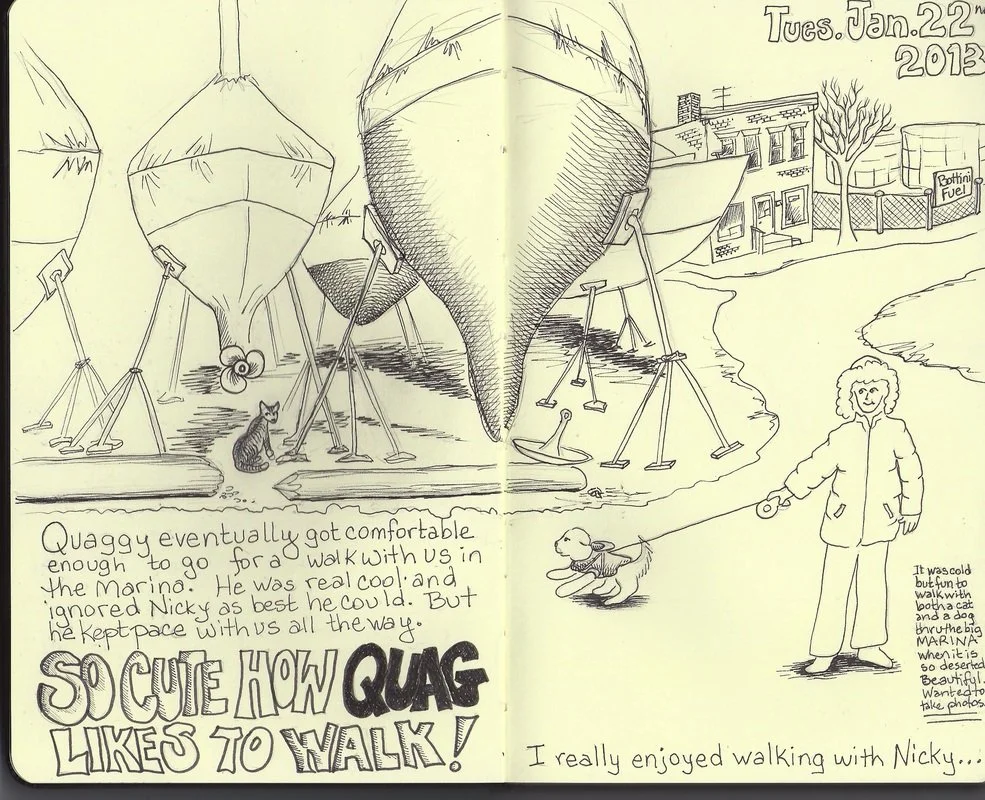 Tues. Jan. 22nd
2013
Bottini
Fuel
Quaggy eventually got comfortable
enough to go for a walk with us in
the Marina. He was real cool and
ignored Nicky as best he could. But
he kept pace with us all the way.
SO CUTE HOW QUAG
LIKES TO WALK!
It was cold
but fun to
walk with
both a cat
and a dog
thru the big
MARINA
when it is
so deserted
Beautiful.
Wanted to
take photos.
I really enjoyed walking with Nicky...